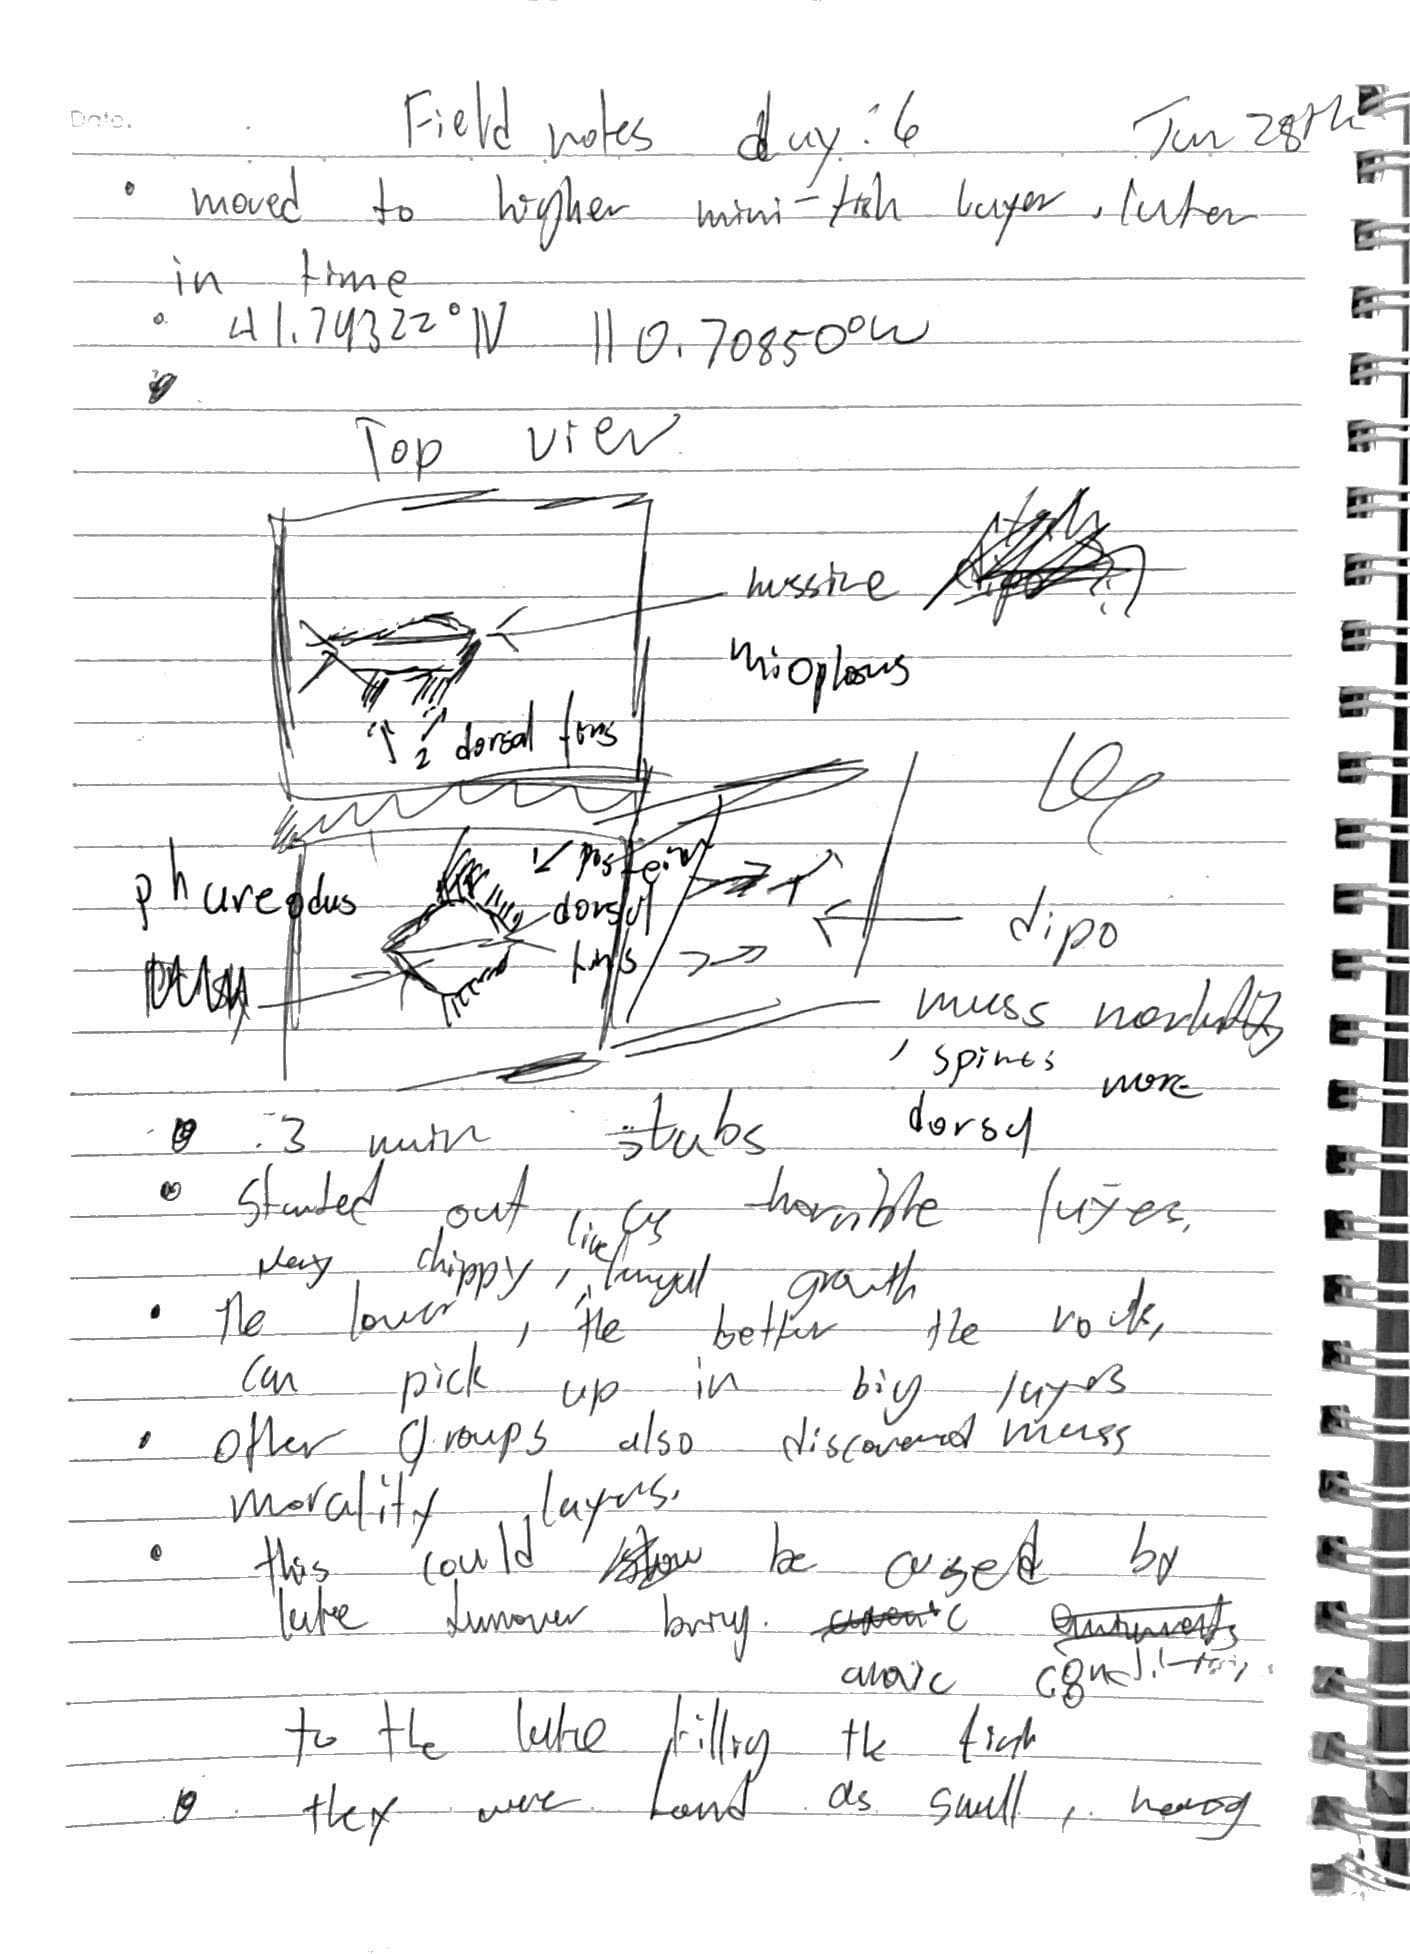 Date.
Field notes day: 6 Jun 28th
• moved to higher mini-fish layer, later
in time
• 41.74322°N 110.70850°W
Top view
massive
mioplosus
2 dorsal fins
phareodus
posterior
dorsal
fins
dipo
mass mortality
, spines more
dorsal
• 3 main slabs
• Started out as horrible layer,
very chippy, like fungal growth
• The lower, the better the rock,
can pick up in big layers
• other groups also discovered mass
morality layers.
• this could be caused by
lake turnover bring
anoxic conditions
to the lake killing the fish
• they were found as small,